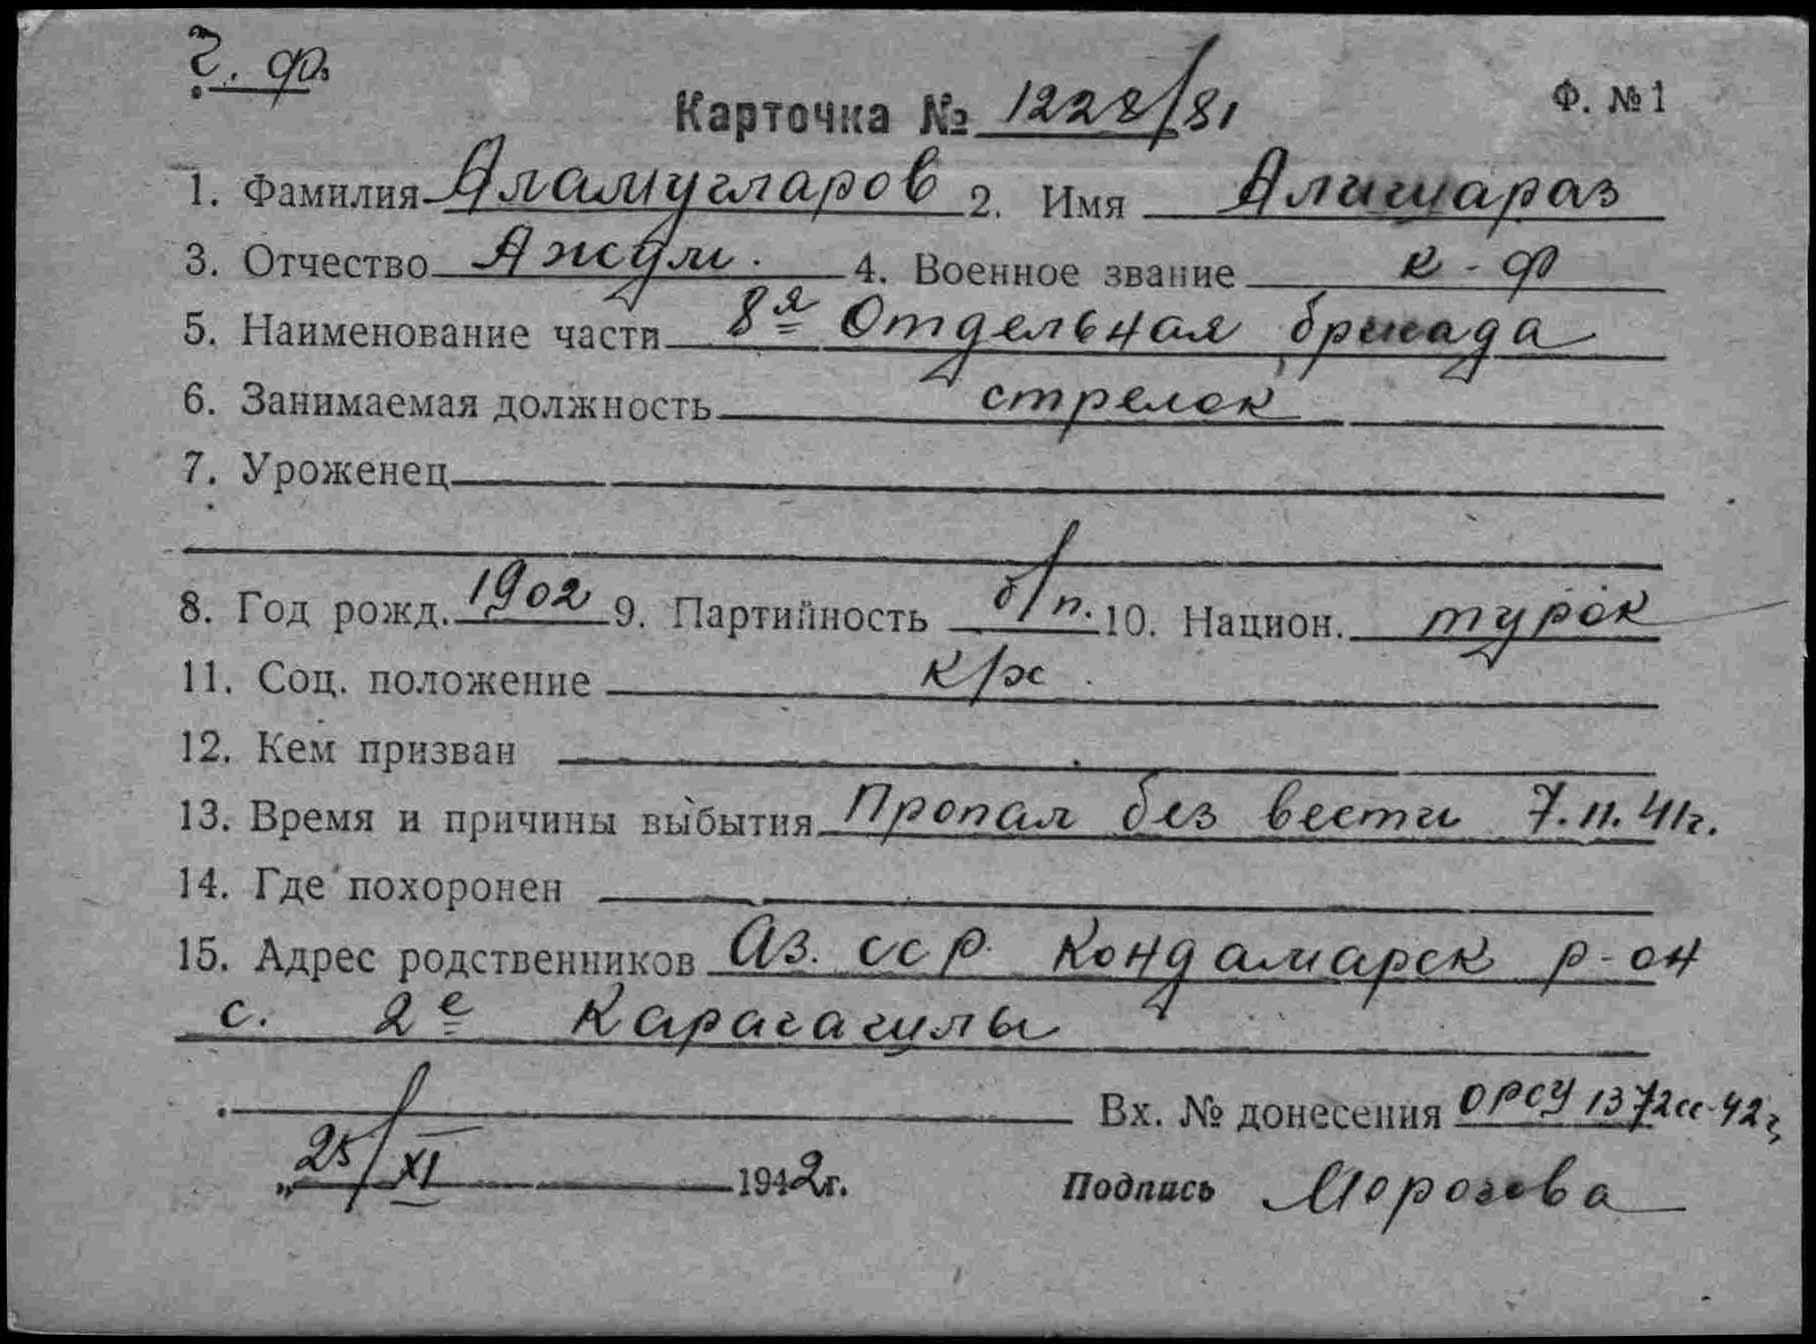 Ч. ф.
Карточка № 1228/81 Ф. №1
1. Фамилия Аламугларов 2. Имя Алишараз
3. Отчество Аждм. 4. Военное звание к-ф
5. Наименование части 8я Отдельная бригада
6. Занимаемая должность стрелок
7. Уроженец
8. Год рожд. 1902 9. Партийность б/п. 10. Национ. турок
11. Соц. положение к/х
12. Кем призван
13. Время и причины выбытия Пропал без вести 7.11.41г.
14. Где похоронен
15. Адрес родственников Аз. сср. Кондамарск р-он
с. 2е Карагагулы
Вх. № донесения ОРСУ 1372сс-42г
„25/XI 1942г. Подпись Морозова